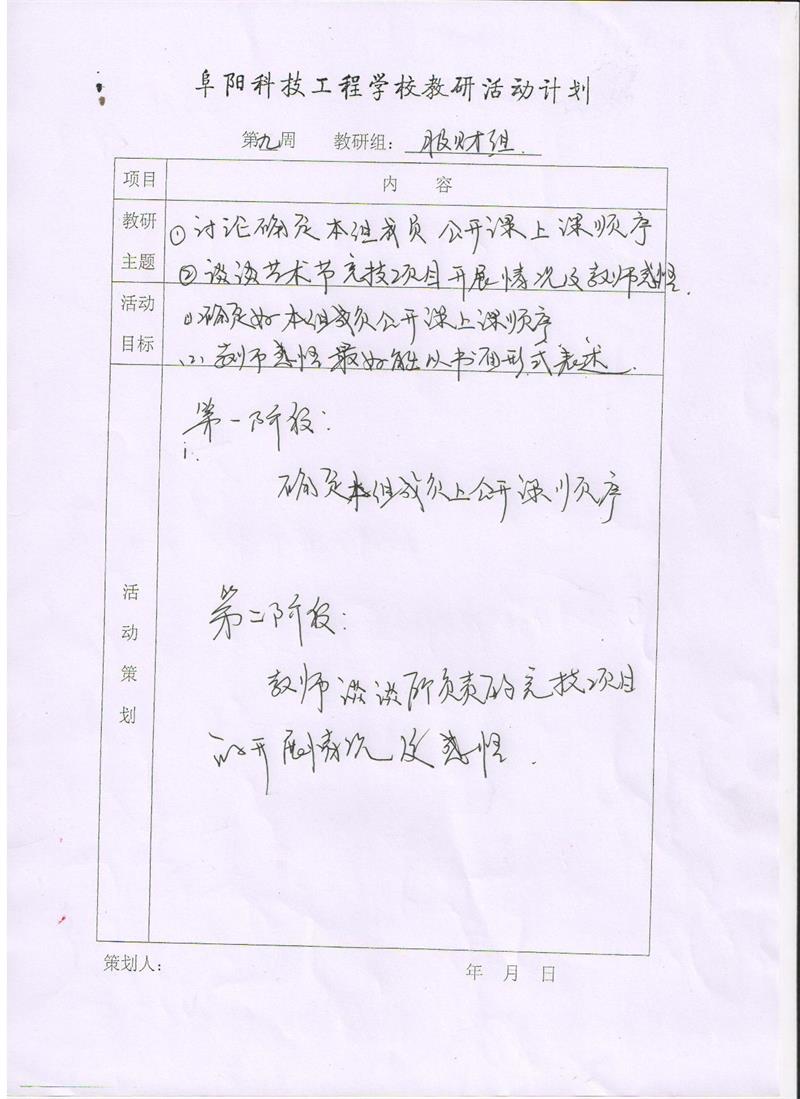 阜阳科技工程学校教研活动计划
第九周 教研组：服财组
项目 内 容
教研主题
①讨论确定本组成员公开课上课顺序
②谈谈艺术节竞技项目开展情况及教师感悟.
活动目标
⑴确定好本组成员公开课上课顺序
⑵教师感悟最好能以书面形式表述.
活动策划
第一阶段：
确定本组成员上公开课顺序
第二阶段：
教师谈谈所负责的竞技项目
的开展情况及感悟.
策划人： 年 月 日